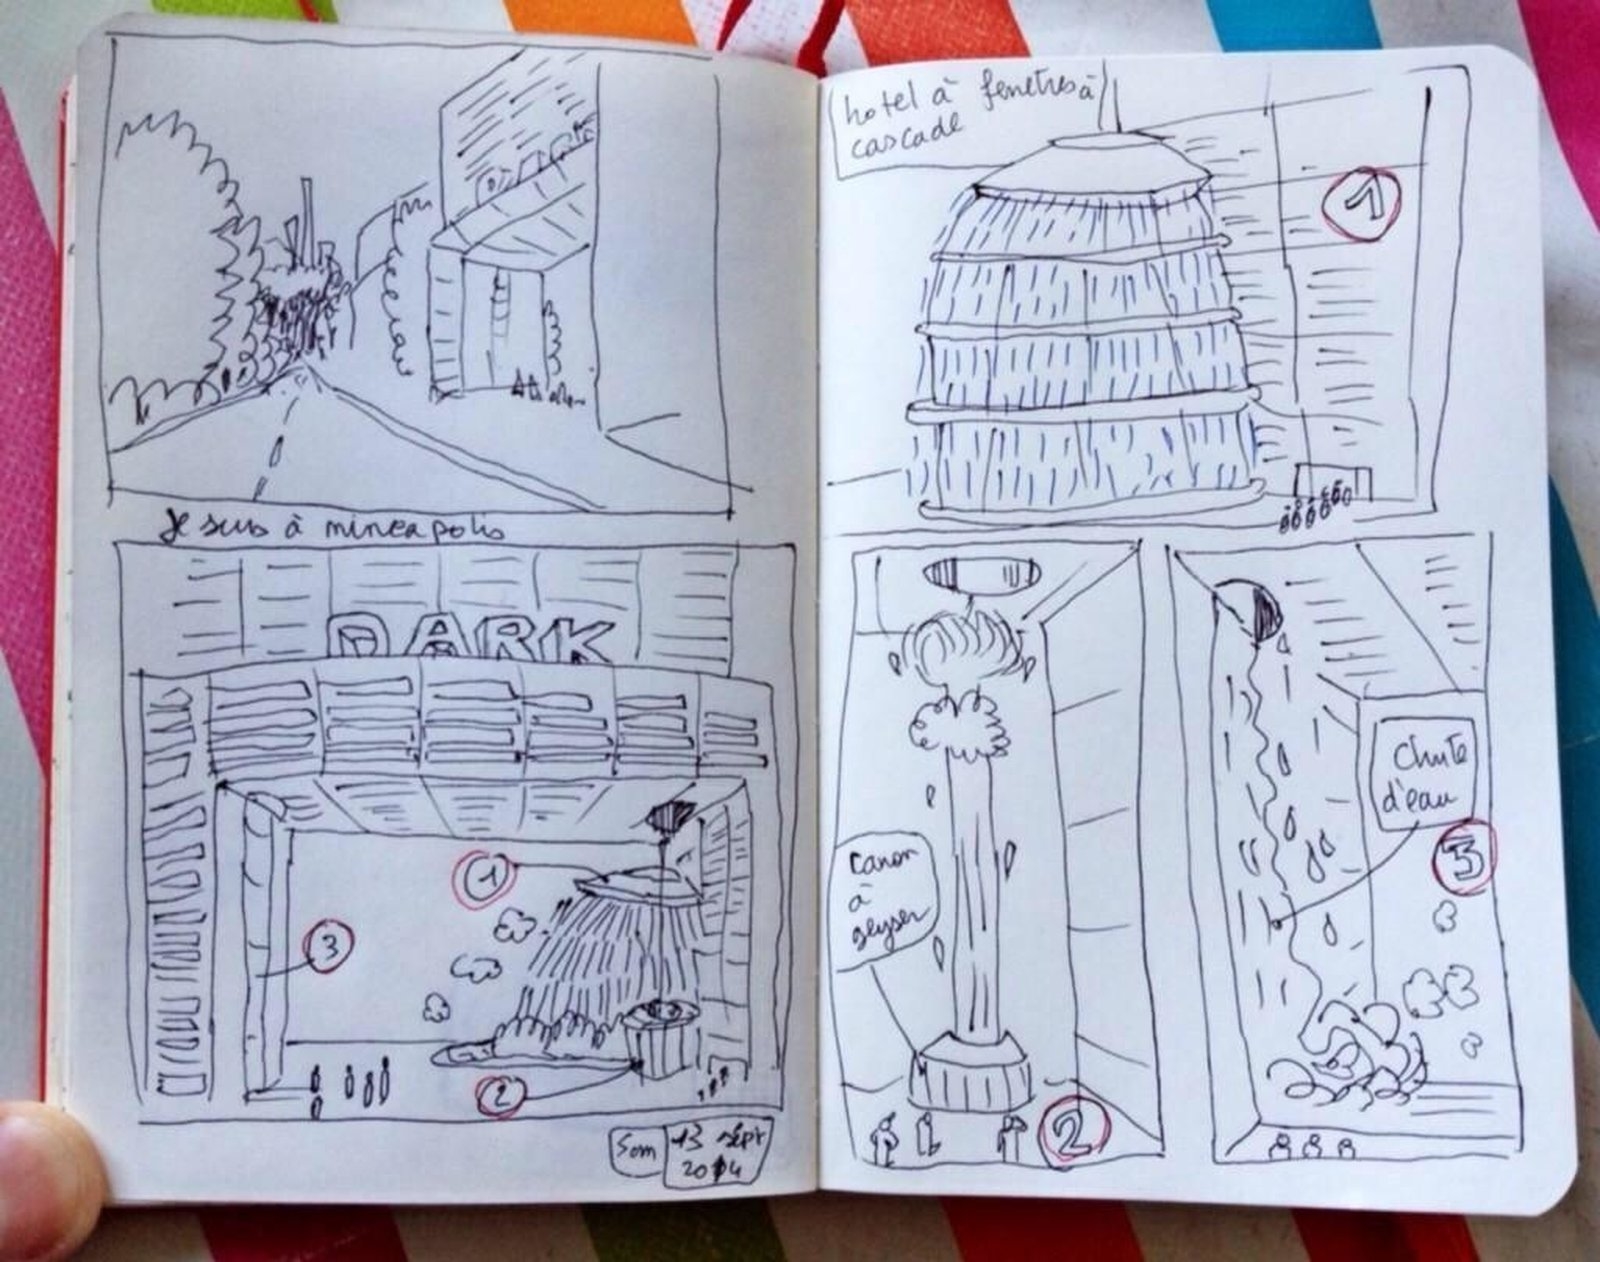 Je suis à mineapolis
DARK
1
3
2
Sam 13 sept
2014
hotel à fenetres à
cascade
1
Canon
à
geyser
2
Chute
d'eau
3